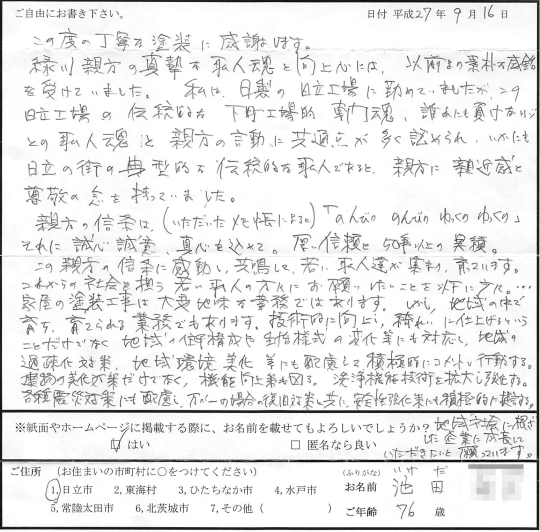 ご自由にお書き下さい。 日付 平成27年9月16日
この度の丁寧な塗装に感謝します。
緑川親方の真摯な職人魂と向上心には、以前より素朴な感銘
を受けていました。私は、日製の日立工場に勤めていましたが、この
日立工場の伝統的な下町工場的魂、誰にも負けないぞ
との職人魂と親方の言動に共通点が多く認められ、いかにも
日立の街の典型的な伝統的な職人であると、親方に親近感と
尊敬の念を持っていました。
親方の信条は、(いただいたメモ帳によると)「のんびり のんびり ゆっくり ゆっくり」
それに誠心誠意、真心を込めて。厚い信頼と50年以上の実積。
この親方の信条に感動し、共鳴して、若い職人達が集まり、育っています。
これからの社会を担う若い職人の方々にお願いしたいことを以下に記入…
家屋の塗装工事は大変地味な業務ではあります。しかし、地域の中で
育ち、育てられる業務でもあります。技術的に向上し、綺れいに仕上げるという
ことだけでなく地域の住宅構成や生活様式の変化等にも対応し、地域の
過疎化対策、地域環境美化等にも配慮して積極的にコメントし行動する。
建物の美化対策だけでなく、機能向上策も図る。洗浄機能技術を拡大し強化する。
各種震災対策にも配慮し、万が一の場合の復旧対策と共に、安全性強化策にも積極的に提言する。
※紙面やホームページに掲載する際に、お名前を載せてもよろしいでしょうか? 地域社会に根ざ
☑はい □匿名なら良い した企業に成長して
いただきたいと願っています。
ご住所 (お住まいの市町村に○をつけてください) (ふりがな) いけだ
1,日立市 2,東海村 3,ひたちなか市 4,水戸市 お名前 池田
5,常陸太田市 6,北茨城市 7,その他( ) ご年齢 76 歳